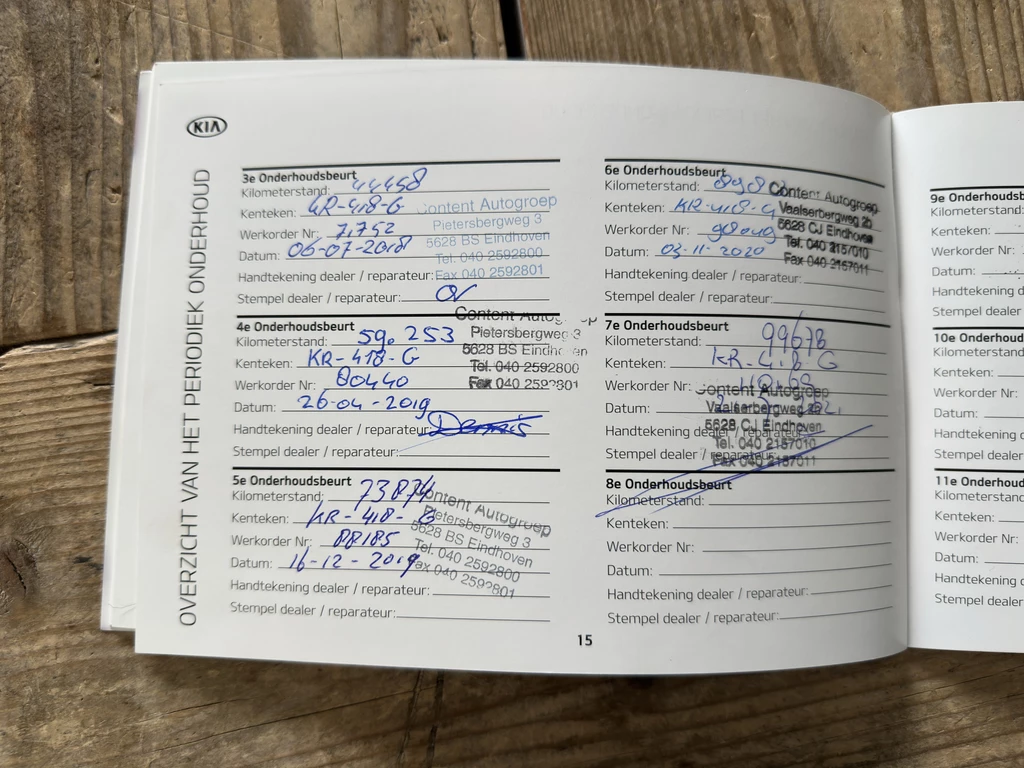 KIA
OVERZICHT VAN HET PERIODIEK ONDERHOUD
3e Onderhoudsbeurt
Kilometerstand: 44458
Kenteken: KR-418-G
Werkorder Nr: 71752
Datum: 06-07-2018
Handtekening dealer / reparateur:
Stempel dealer / reparateur:
Content Autogroep
Pietersbergweg 3
5628 BS Eindhoven
Tel. 040 2592800
Fax 040 2592801
4e Onderhoudsbeurt
Kilometerstand: 59.253
Kenteken: KR-418-G
Werkorder Nr: 80440
Datum: 26-04-2019
Handtekening dealer / reparateur: Dennis
Stempel dealer / reparateur:
Content Autogroep
Pietersbergweg 3
5628 BS Eindhoven
Tel. 040 2592800
Fax 040 2592801
5e Onderhoudsbeurt
Kilometerstand: 73874
Kenteken: KR-418-G
Werkorder Nr: 88185
Datum: 16-12-2019
Handtekening dealer / reparateur:
Stempel dealer / reparateur:
Content Autogroep
Pietersbergweg 3
5628 BS Eindhoven
Tel. 040 2592800
Fax 040 2592801
6e Onderhoudsbeurt
Kilometerstand:
Kenteken: KR-418-G
Werkorder Nr:
Datum: 03-11-2020
Handtekening dealer / reparateur:
Stempel dealer / reparateur:
Content Autogroep
Vaalserbergweg 2b
5628 CJ Eindhoven
Tel. 040 2157010
Fax 040 2157011
7e Onderhoudsbeurt
Kilometerstand: 99678
Kenteken: KR-418 G
Werkorder Nr:
Datum:
Handtekening dealer / reparateur:
Stempel dealer / reparateur:
Content Autogroep
Vaalserbergweg 2b
5628 CJ Eindhoven
Tel. 040 2157010
Fax 040 2157011
8e Onderhoudsbeurt
Kilometerstand:
Kenteken:
Werkorder Nr:
Datum:
Handtekening dealer / reparateur:
Stempel dealer / reparateur:
15
9e Onderhoudsb
Kilometerstand:
Kenteken:
Werkorder Nr:
Datum:
Handtekening d
Stempel dealer
10e Onderhoud
Kilometerstand
Kenteken:
Werkorder Nr:
Datum:
Handtekening
Stempel deale
11e Onderhou
Kilometerstand
Kenteken:
Werkorder Nr
Datum:
Handtekening
Stempel deale